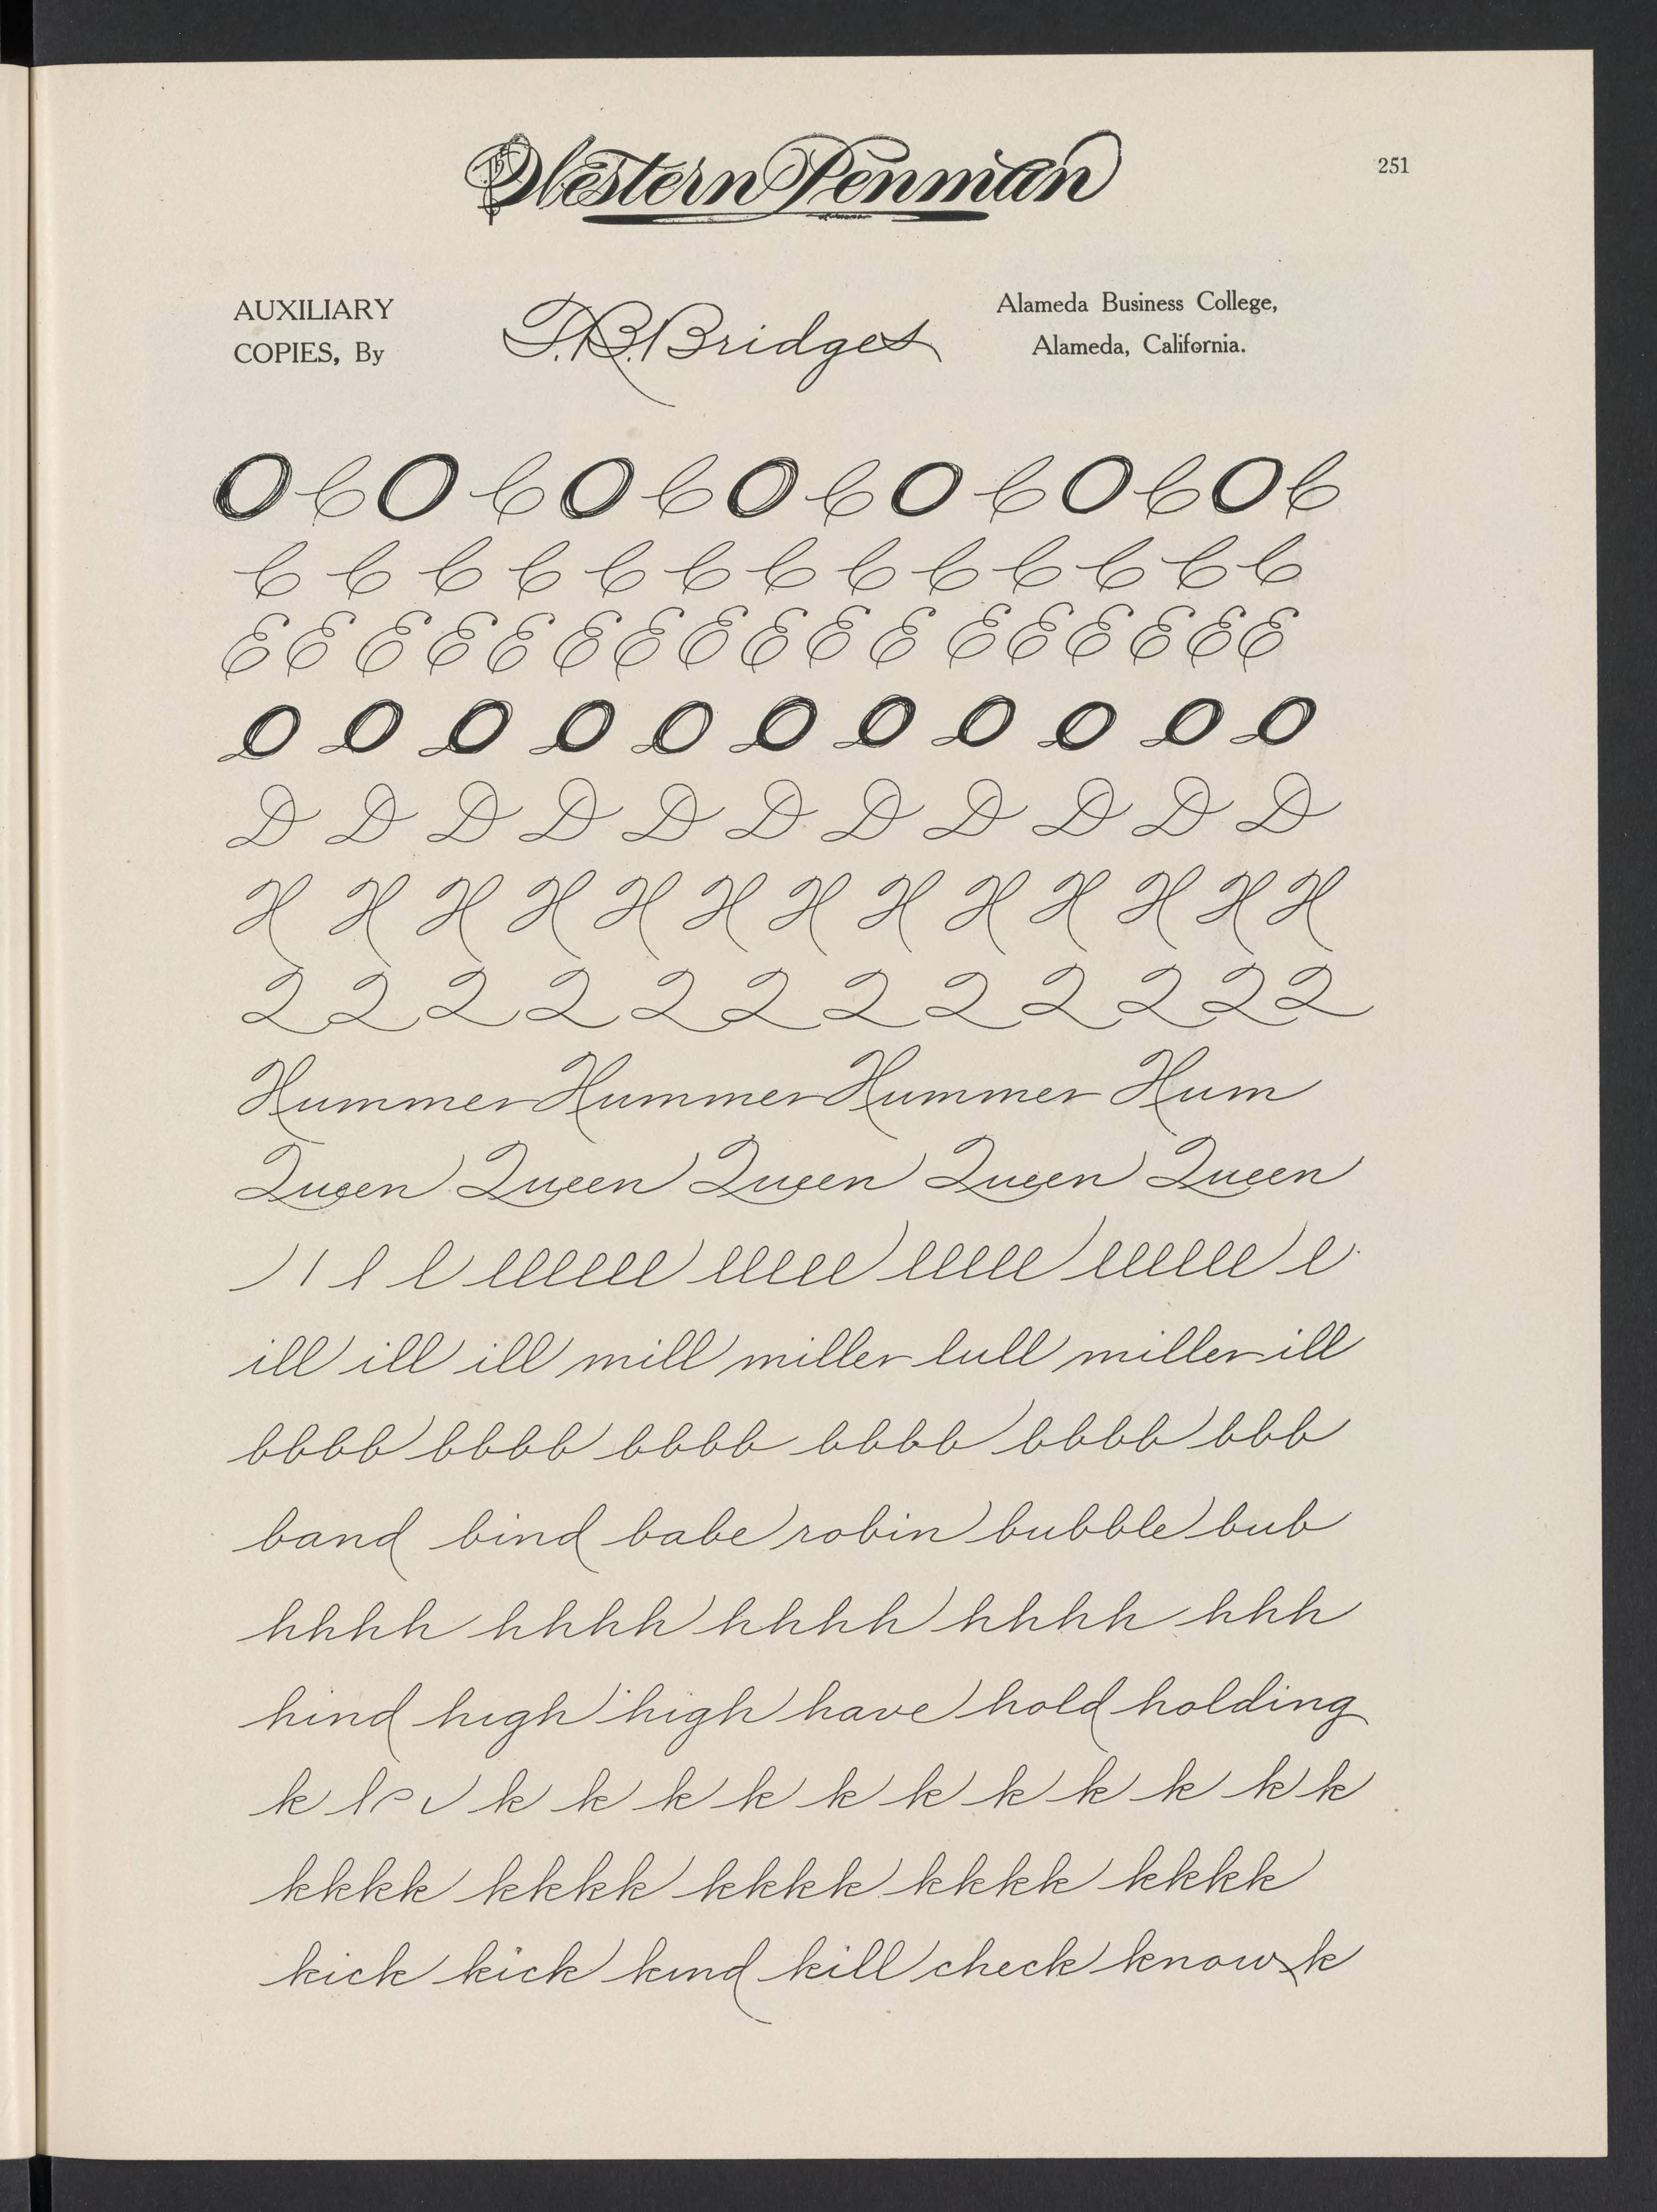 The Western Penman
251
AUXILIARY
COPIES, By
T.B. Bridges
Alameda Business College,
Alameda, California.
O C O C O C O C O C O C O C
C C C C C C C C C C C C C
E E E E E E E E E E E E E E E E E
O O O O O O O O O O O
D D D D D D D D D D D
H H H H H H H H H H H H H
Q Q Q Q Q Q Q Q Q Q Q Q
Hummer Hummer Hummer Hum
Queen Queen Queen Queen Queen
l l llllll lllll lllll llllll l
ill ill ill mill miller lull miller ill
bbbb bbbb bbbb bbbb bbbb bbb
band bind babe robin bubble bub
hhhh hhhh hhhh hhhh hhh
hind high high have hold holding
k k k k k k k k k k k k
kkkk kkkk kkkk kkkk kkkk
kick kick kind kill check know k